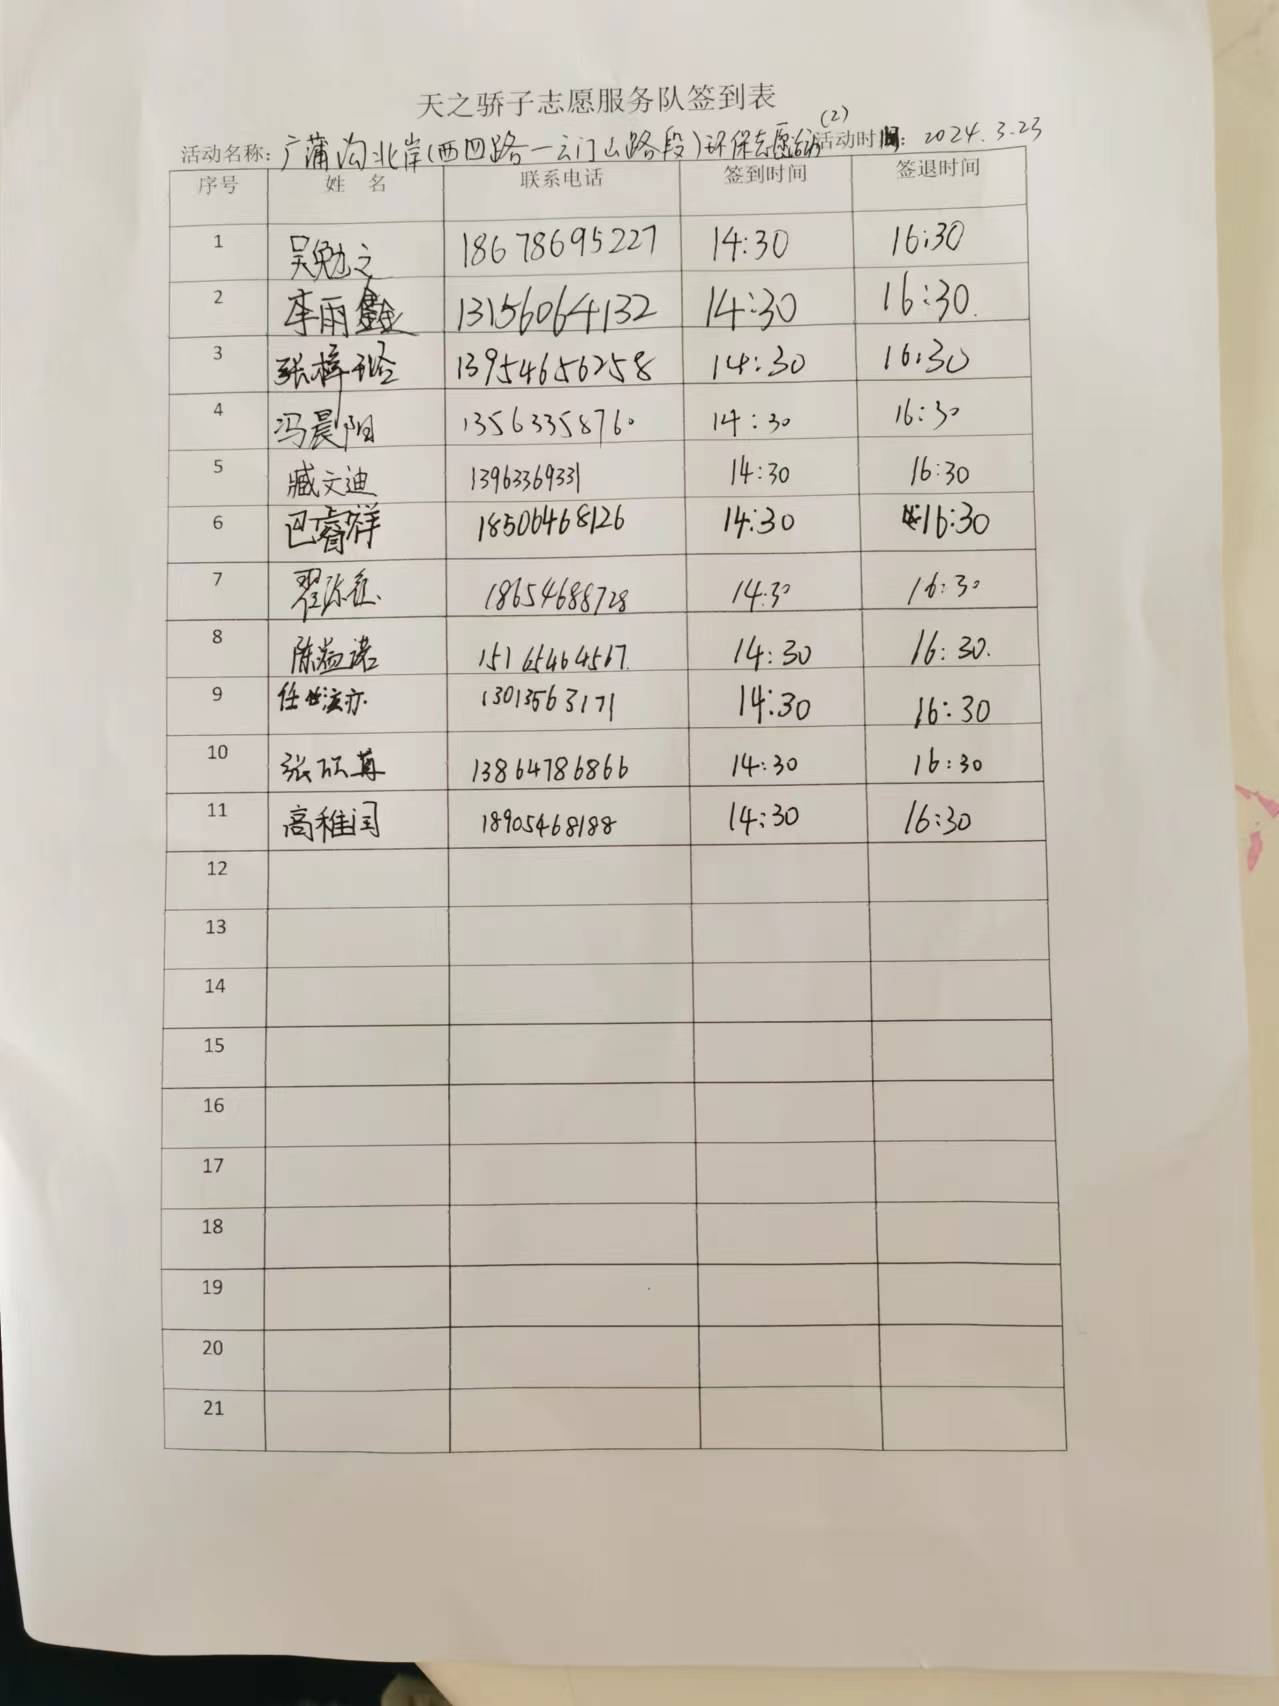 天之骄子志愿服务队签到表
(2)
活动名称: 广蒲沟北岸(西四路一云门山路段)环保志愿活动 活动时间: 2024.3.23
序号 姓 名 联系电话 签到时间 签退时间
1 吴勉之 18678695227 14:30 16:30
2 李雨鑫 13156064132 14:30 16:30.
3 张梓 13954656258 14:30 16:30
4 冯晨阳 13563358760 14:30 16:30
5 臧文迪 13963369331 14:30 16:30
6 巴睿祥 18506468126 14:30 16:30
7 翟 18654688728 14:30 16:30
8 陈益诺 15165464567. 14:30 16:30.
9 任 13013563171 14:30 16:30
10 张 13864786866 14:30 16:30
11 高稚闰 18905468188 14:30 16:30
12
13
14
15
16
17
18
19
20
21